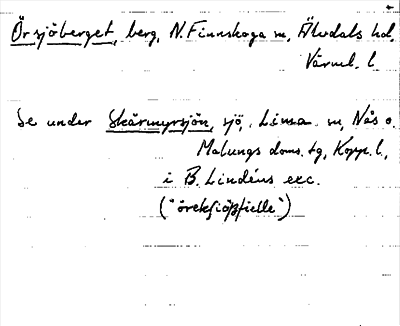 Örsjöberget, berg, N. Finnskoga sn, Älvdals hd,
Värml. l.
Se under Skärmyrsjön, sjö, Lima sn, Nås o.
Malungs doms. tg, Kopp. l.,
i B. Lindéns exc.
("örekſiöpfielle")